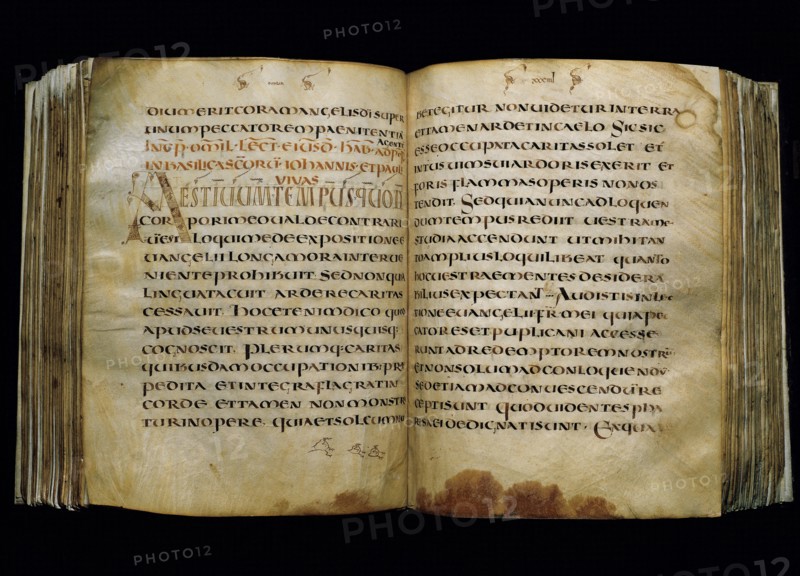 DIUMERITCORAMANGELISDISUPER
UNUMPECCATOREMPAENITENTIĀ
AGENTE
IN BASILICA SCORŪ IOHANNIS ET PAULI
VIVAS
AESTIVUMTEMPUSQUOD
CORPORIMEOUALDECONTRARI
LOQUIMEDEEXPOSITIONEE
UANGELIILONGAMORAINTERUE
NIENTEPROHIBUIT SEDNONQUIA
LINGUATACUIT ARDERECARITAS
CESSAUIT HOCETENIMDICO QUOD
APUDSEUESTRUMUNUSQUISQ·
COGNOSCIT· PLERUMQ·CARITAS
QUIBUSDAMOCCUPATIONIB·PRE
PEDITA ETINTEGRAFLAGRATIN
CORDE ETTAMEN NONMONSTR
TURINOPERE· QUIAETSOLCUMNU
XXXIIII
BETEGITUR NONUIDETURINTERRA
ETTAMENARDETINCAELO SICSIC
ESSEOCCUPATACARITASSOLET ET
INTUSUIMSUIARDORISEXERIT ET
FORIS FLAMMASOPERISNONOS
TENDIT· SEDQUIANUNCADLOQUEN
DUMTEMPUSREDIIT UESTRAME
STUDIAACCENDUNT UTMIHITAN
TOAMPLIUSLOQUILIBEAT QUANTO
HOCUESTRAEMENTESDESIDERA
BILIUSEXPECTANT AUDISTISINLEC
TIONEEUANGELIIFRMEI QUIAPEC
CATORESETPUPLICANI ACCESSE
RUNTADREDEMPTOREMNOSTRŪ
ETNONSOLUMADCONLOQUIENDU
SEDETIAMADCONUESCENDŪRE
CEPTISUNT QUODUIDENTESPHA
RISAEIDEDIGNATISUNT· EXQUA
PHOTO12